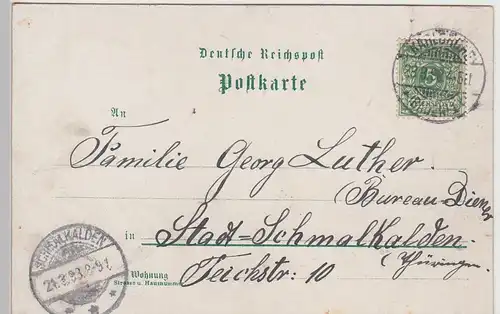 Deutsche Reichspost
Postkarte
5
An
Familie Georg Luther.
(Bureau-Diener
in Stadt-Schmalkalden
(Thüringen.
Wohnung
Strasse u. Hausnummer
Teichstr: 10
SCHMALKALDEN